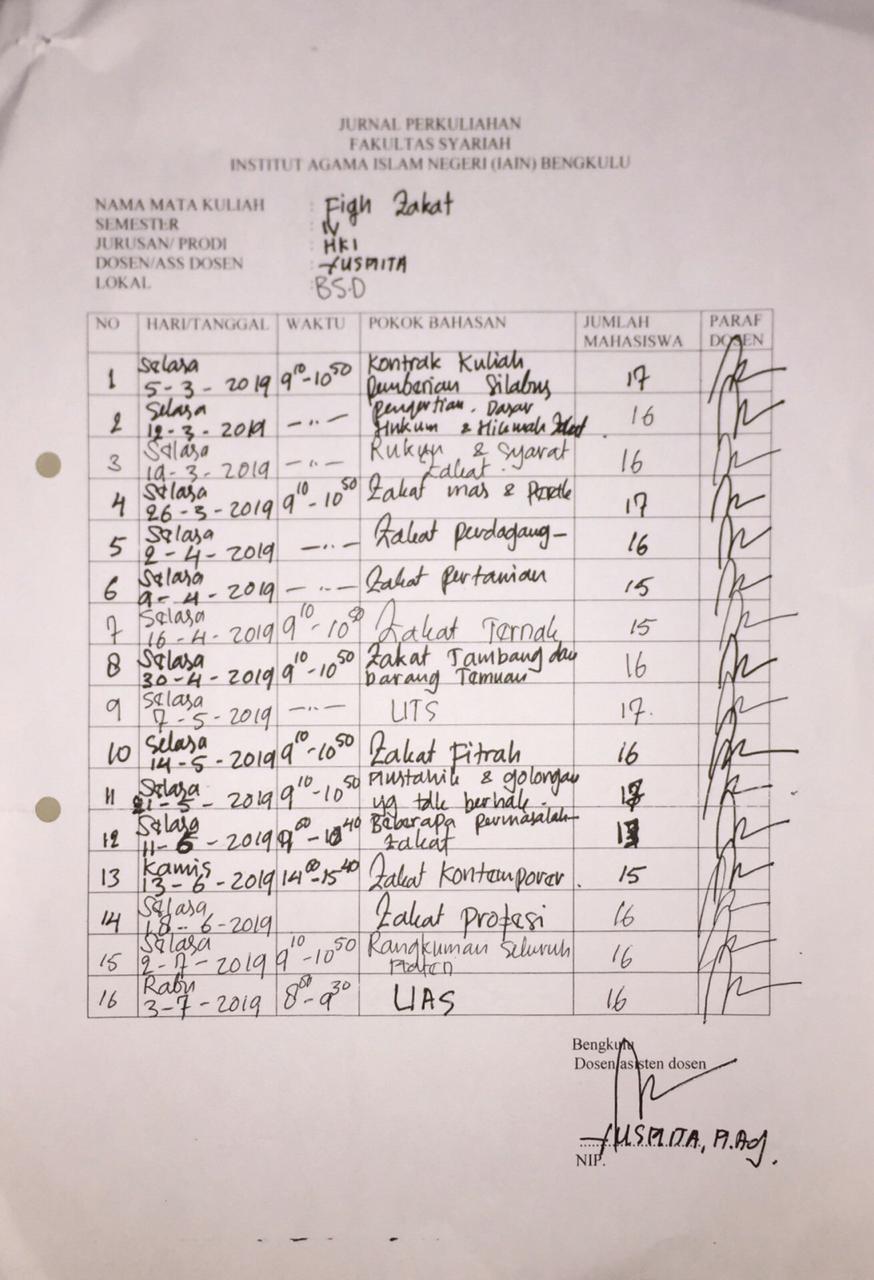 JURNAL PERKULIAHAN
FAKULTAS SYARIAH
INSTITUT AGAMA ISLAM NEGERI (IAIN) BENGKULU
NAMA MATA KULIAH : Fiqh Zakat
SEMESTER : IV
JURUSAN/ PRODI : HKI
DOSEN/ASS DOSEN : YUSMITA
LOKAL : BS.D
NO HARI/TANGGAL WAKTU POKOK BAHASAN JUMLAH MAHASISWA PARAF DOSEN
1 Selasa 5-3-2019 9¹⁰-10⁵⁰ Kontrak Kuliah Pemberian Silabus 17
2 Selasa 12-3-2019 -"- Pengertian. Dasar Hukum & Hikmah Zakat 16
3 Selasa 19-3-2019 -"- Rukun & Syarat Zakat. 16
4 Selasa 26-3-2019 9¹⁰-10⁵⁰ Zakat mas & Perak 17
5 Selasa 2-4-2019 -"- Zakat perdagang- 16
6 Selasa 9-4-2019 -"- Zakat pertanian 15
7 Selasa 16-4-2019 9¹⁰-10⁵⁰ Zakat Ternak 15
8 Selasa 30-4-2019 9¹⁰-10⁵⁰ Zakat Tambang dan barang Temuan 16
9 Selasa 7-5-2019 -"- UTS 17.
10 Selasa 14-5-2019 9¹⁰-10⁵⁰ Zakat Fitrah 16
11 Selasa 21-5-2019 9¹⁰-10⁵⁰ Mustahik & golongan yg tdk berhak.
12 Selasa 11-6-2019 Beberapa permasalah- Zakat
13 Kamis 13-6-2019 14⁰⁰-15⁴⁰ Zakat Kontemporer. 15
14 Selasa 18-6-2019 Zakat Profesi 16
15 Selasa 2-7-2019 9¹⁰-10⁵⁰ Rangkuman Seluruh Materi 16
16 Rabu 3-7-2019 8⁰⁰-9³⁰ UAS 16
Bengkulu
Dosen/asisten dosen
YUSMITA, M.Ag.
NIP.